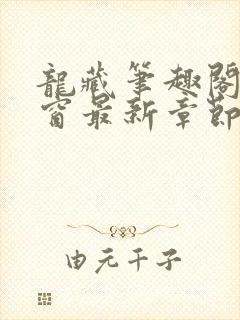 龍藏筆趣閣
窗最新章節
由元千子